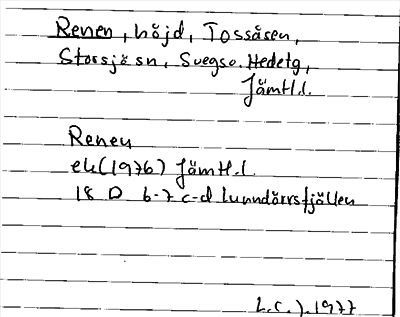 Renen, höjd, Tossåsen,
Storsjö sn, Svegs o. Hedetg,
Jämtl.l.
Renen
ek (1976) Jämtl.l.
18 D 6-7 c-d Lunndörrsfjällen
L.C.J. 1977